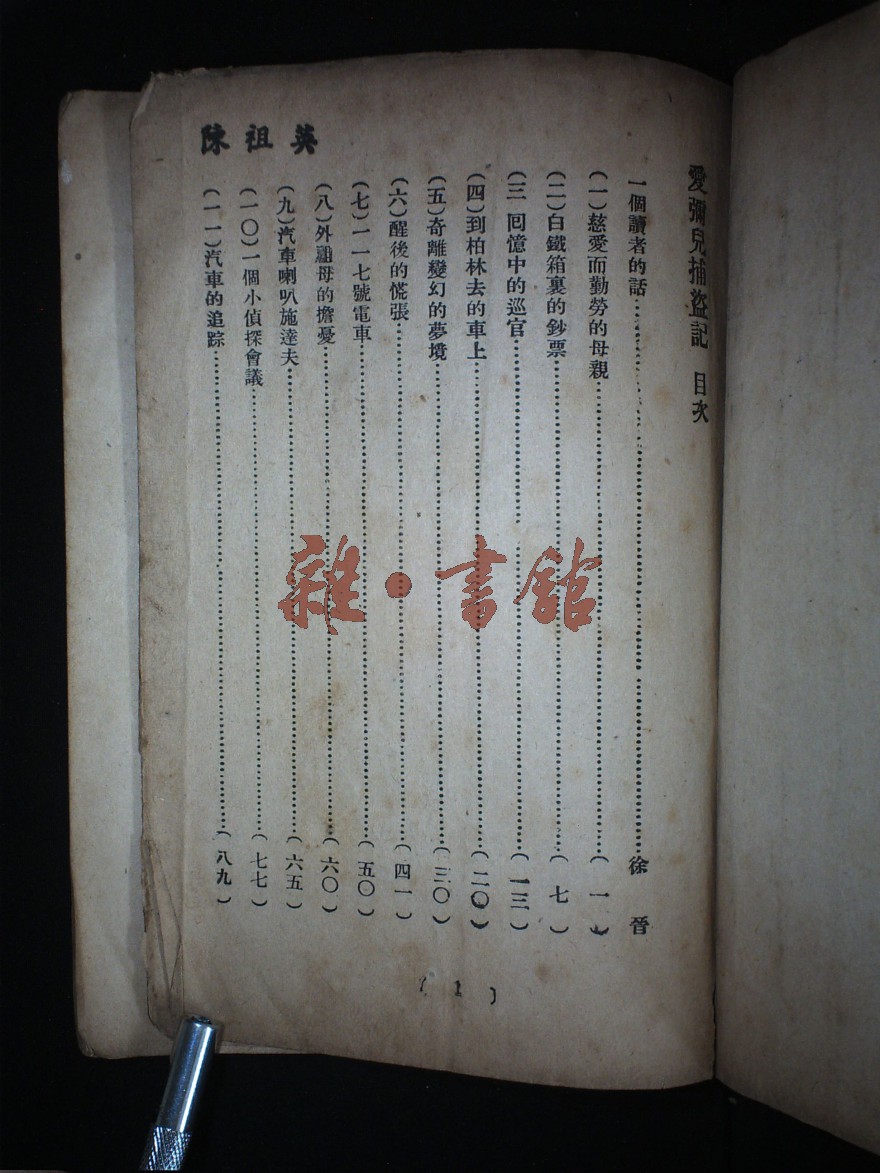 愛彌兒捕盜記 目次
一個讀者的話……徐晉
(一)慈愛而勤勞的母親……(一)
(二)白鐵箱裏的鈔票……(七)
(三 回憶中的巡官……(一三)
(四)到柏林去的車上……(二〇)
(五)奇離變幻的夢境……(三〇)
(六)醒後的慌張……(四一)
(七)一一七號電車……(五〇)
(八)外祖母的擔憂……(六〇)
(九)汽車喇叭施達夫……(六五)
(一〇)一個小偵探會議……(七七)
(一一)汽車的追踪……(八九)
陳祖英
(1)
雜·書館